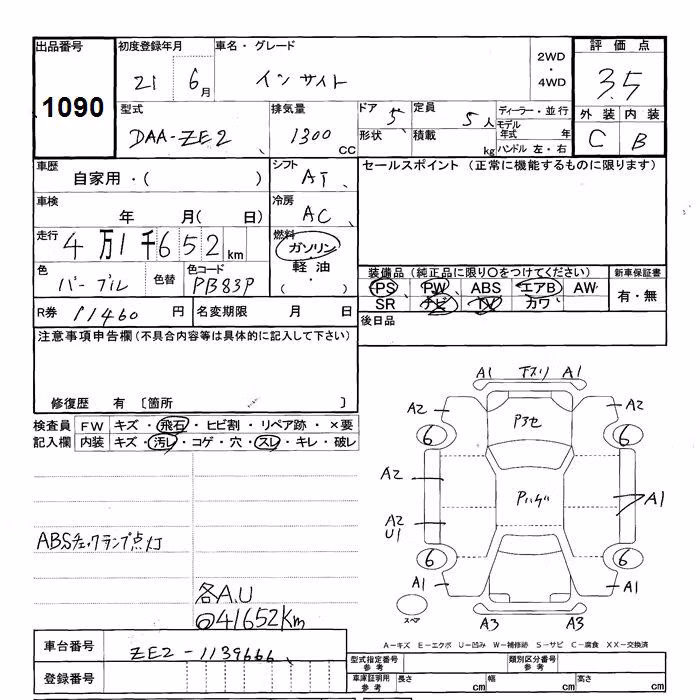 出品番号 初度登録年月 車名・グレード 評価点
1090 21 6月 インサイト 2WD・4WD 3.5
型式 排気量 ドア 5 定員 5人 ディーラー・並行 外装 内装
DAA-ZE2 1300CC 形状 積載 kg モデル年式 年 C B
ハンドル 左・右
車歴 シフト セールスポイント (正常に機能するものに限ります)
自家用・( ) AT
車検 冷房
年 月( 日) AC
走行 4万1千652km 燃料 ガソリン・軽油
色 色替 色コード 装備品(純正品に限り○をつけてください) 新車保証書
パープル PB83P PS PW ABS エアB AW 有・無
SR ナビ TV カワ
R券 11460円 名変期限 月 日 後日品
注意事項申告欄(不具合内容等は具体的に記入して下さい)
修復歴 有 〔箇所 〕
検査員記入欄 FW キズ・飛石・ヒビ割・リペア跡・×要
内装 キズ・汚レ・コゲ・穴・スレ・キレ・破レ
ABSチェックランプ点灯
各A.U
@41652Km
A1 下スリ A1
A2 A2
6 P3セ 6
A2
Pハゲ A1
A2
U1
6 6
A1 A1
スペア A3 A3
A-キズ E-エクボ U-凹み W-補修跡 S-サビ C-腐食 XX-交換済
車台番号 ZE2-1139666 型式指定番号 参考 類別区分番号 参考
登録番号 車庫証明用 参考 長さ cm 幅 cm 高さ cm